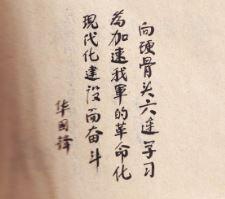 向硬骨头六连学习
为加速我軍的革命化
現代化建设而奋斗
华国锋